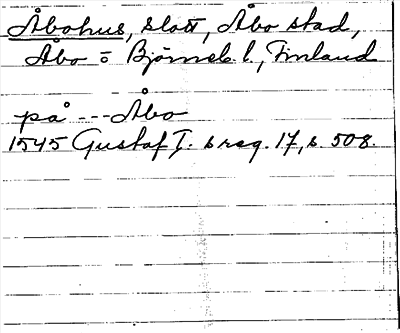 Åbohus, slott, Åbo stad,
Åbo o Björneb. l., Finland
på --- Åbo
1545 Gustaf I. s reg. 17, s. 508.